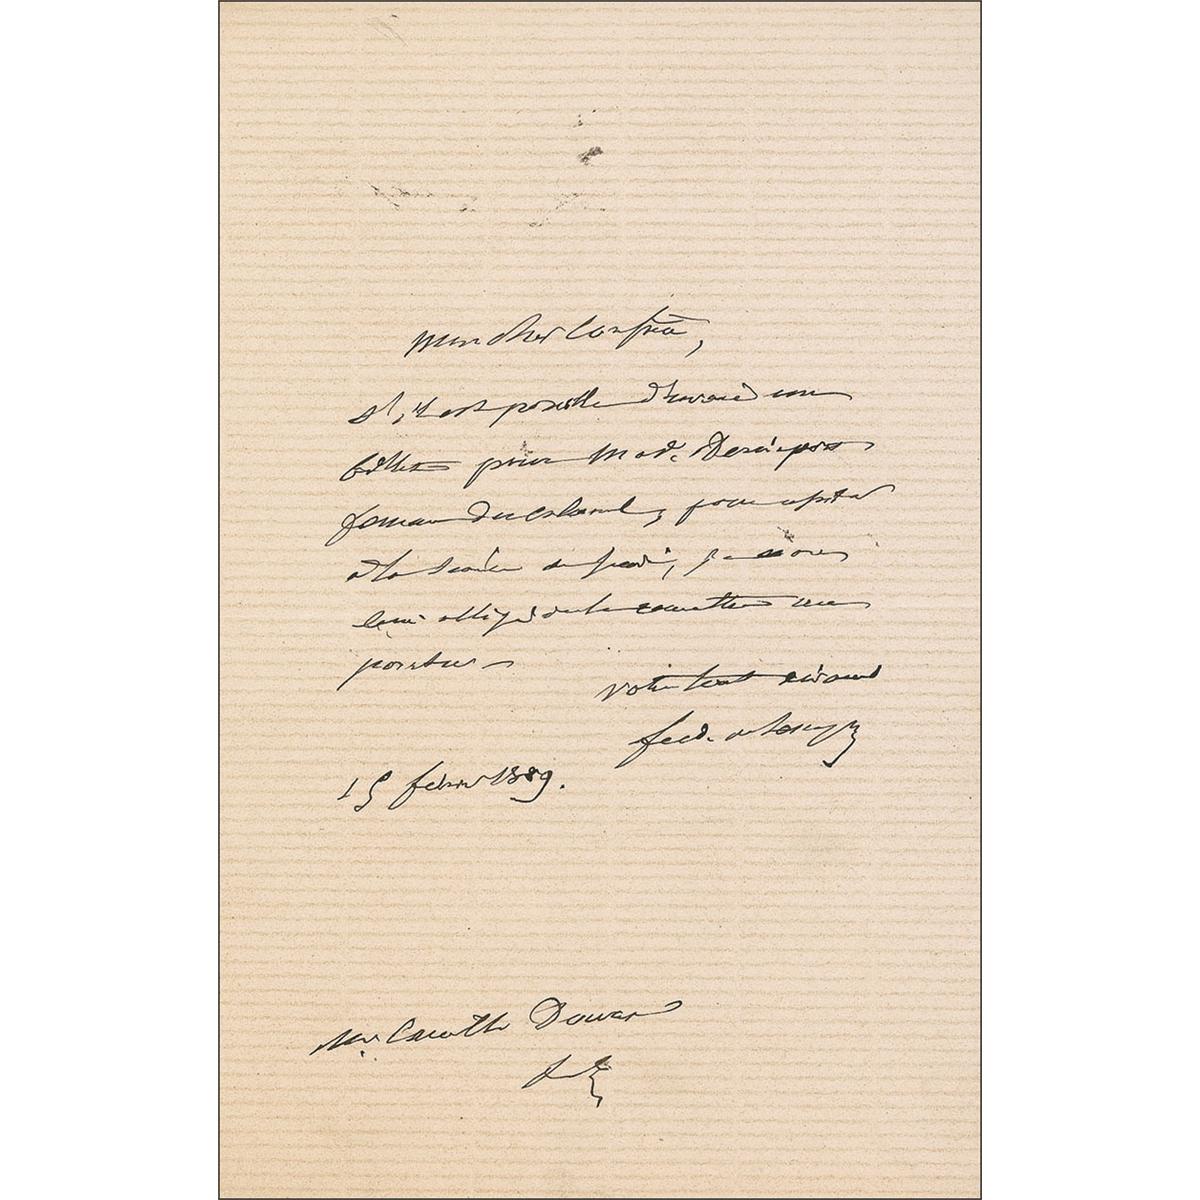 Mon cher Confrère,
S'il est possible d'avoir un
billet pour Mad.
femme du colonel, pour assister
à la séance de jeudi, je
serai obligé de le remettre au
porteur —
votre tout dévoué
ferd. de Lesseps
15 février 1889.
Mr Camille Doucet